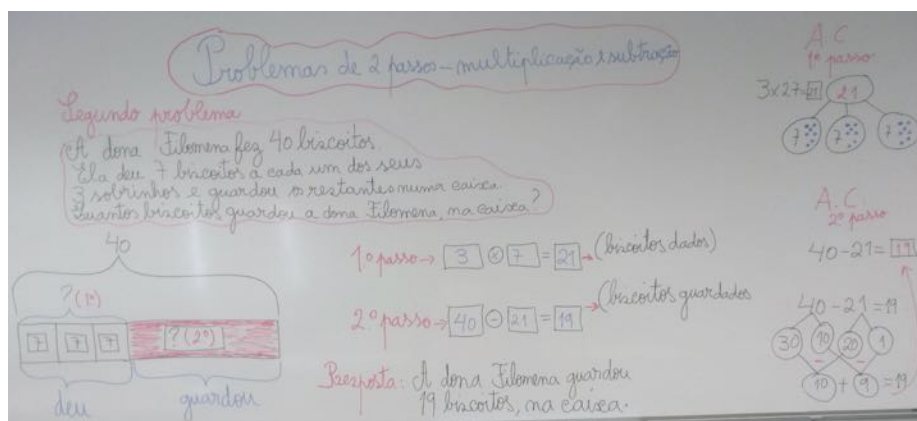 Problemas de 2 passos - multiplicação e subtração
Segundo problema
A dona Filomena fez 40 biscoitos.
Ela deu 7 biscoitos a cada um dos seus
3 sobrinhos e guardou os restantes numa caixa.
Quantos biscoitos guardou a dona Filomena, na caixa?
40
? (1º)
7 7 7 ? (2º)
deu guardou
1º passo → 3 ⊗ 7 = 21 → (biscoitos dados)
2º passo → 40 ⊖ 21 = 19 → (biscoitos guardados
Resposta: A dona Filomena guardou
19 biscoitos, na caixa.
A.C
1º passo
3x27=21 21
7 7 7
A.C.
2º passo
40-21=19
40-21=19
30 10 20 1
10 + 9 = 19